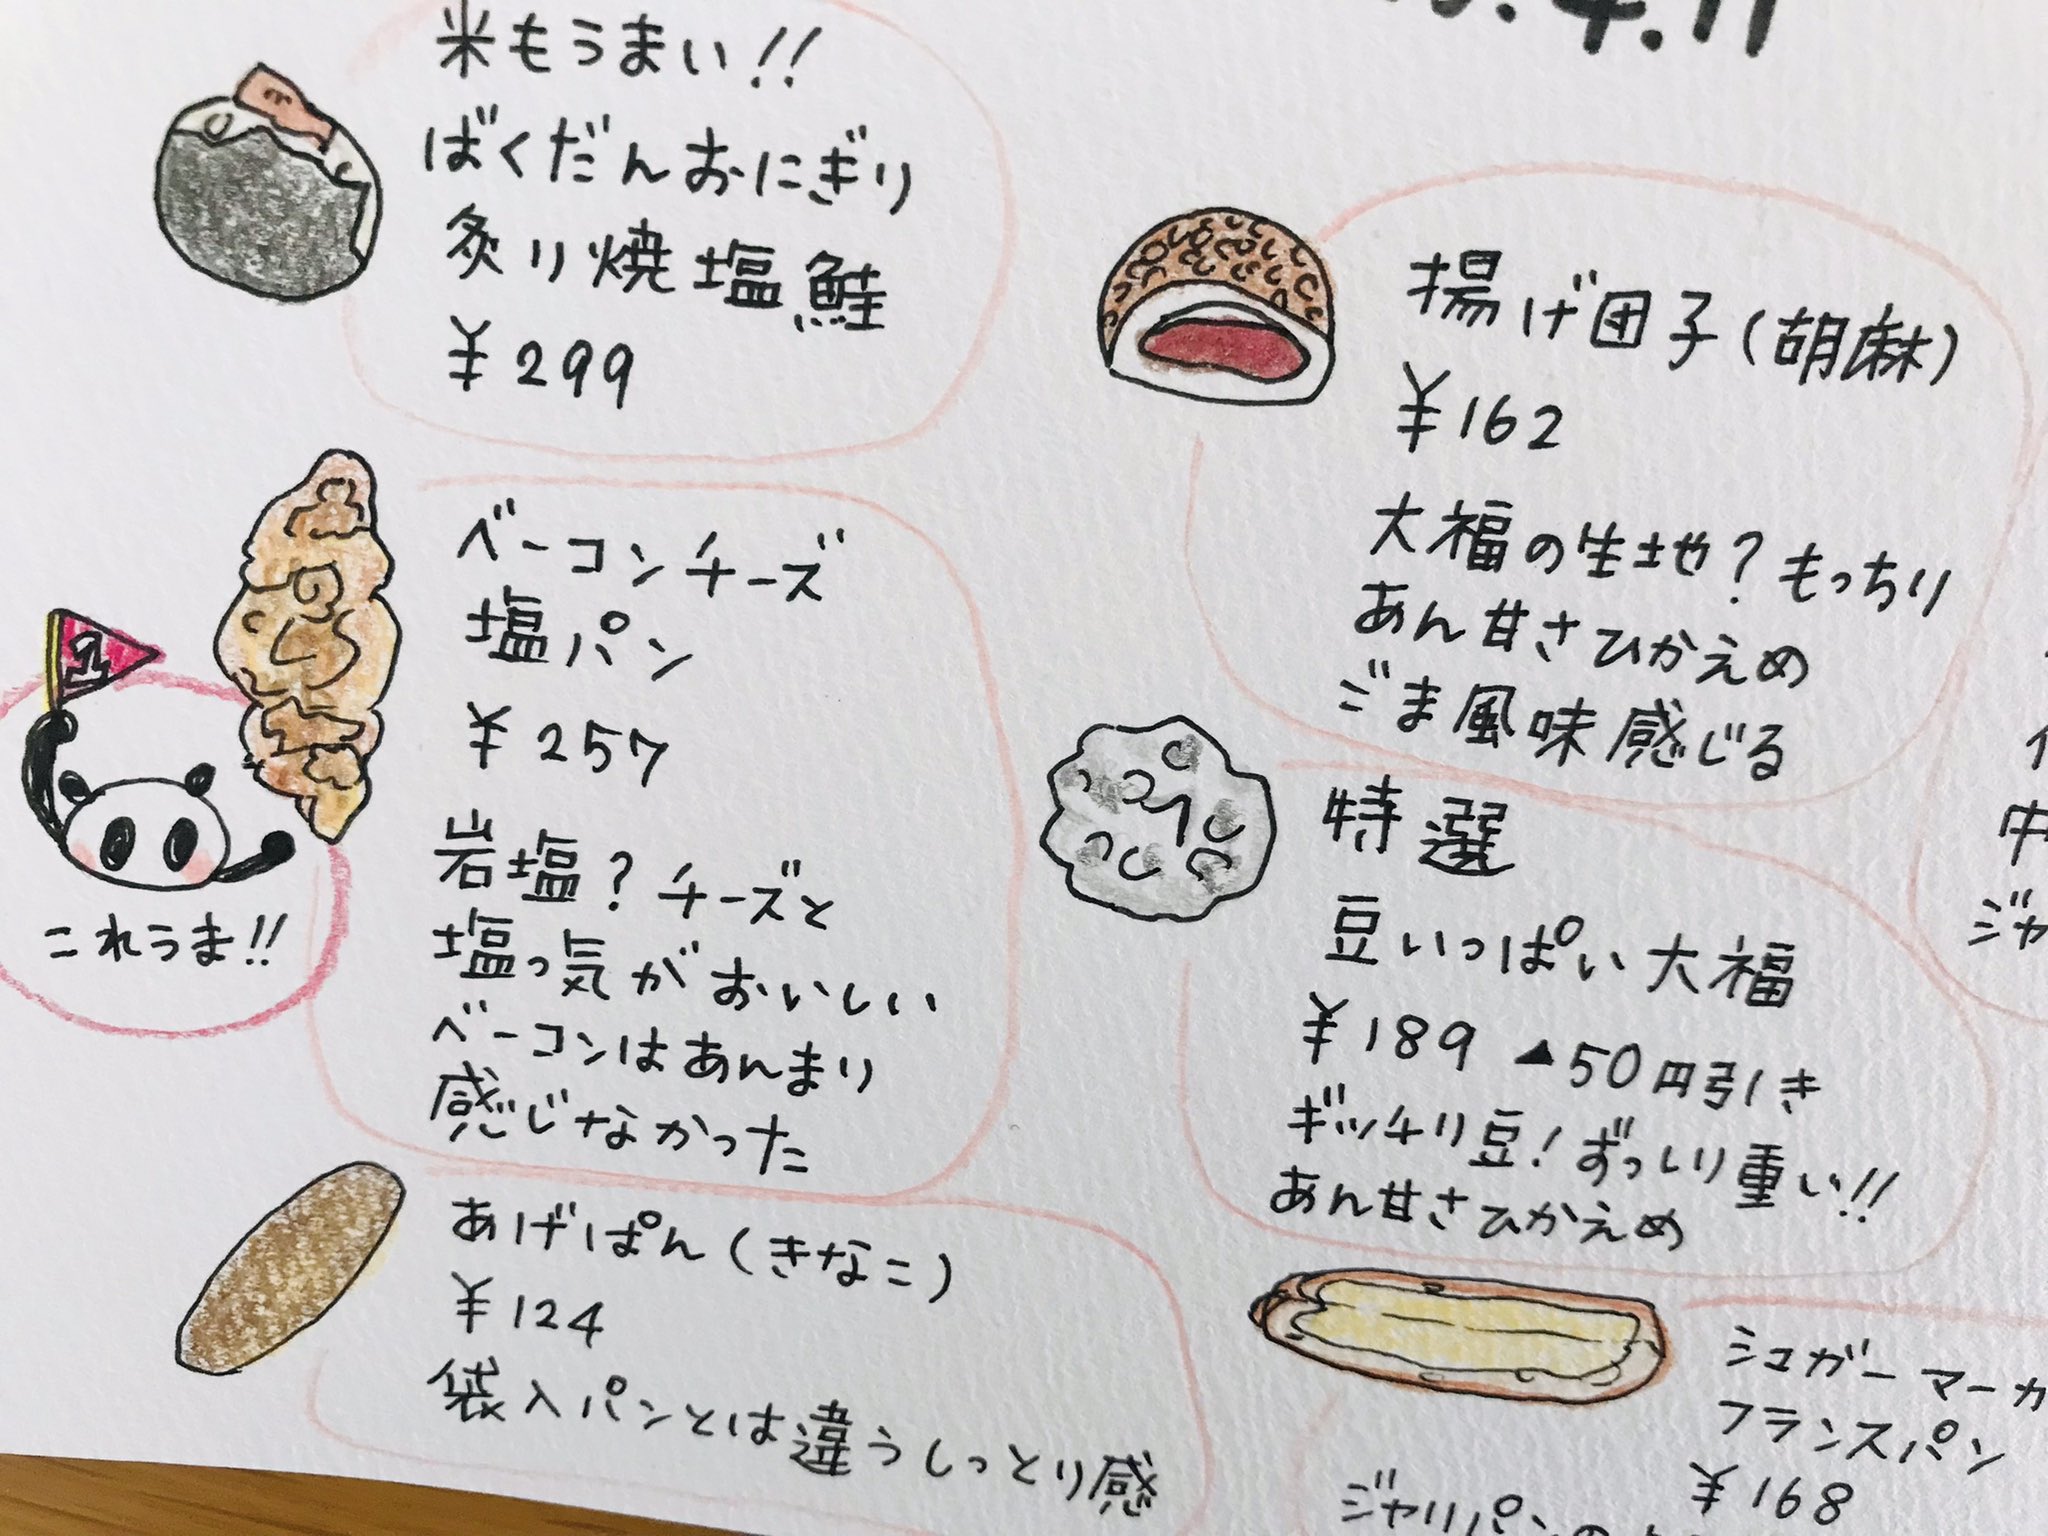 米もうまい!!
ばくだんおにぎり
炙り焼塩鮭
¥299
ベーコンチーズ
塩パン
¥257
岩塩?チーズと
塩っ気がおいしい
ベーコンはあんまり
感じなかった
これうま!!
あげぱん(きなこ)
¥124
袋入パンとは違うしっとり感
.4.11
揚げ団子(胡麻)
¥162
大福の生地?もっちり
あん甘さひかえめ
ごま風味感じる
特選
豆いっぱい大福
¥189 ▲50円引き
ギッチリ豆!ずっしり重い!!
あん甘さひかえめ
シュガーマーガ
フランスパン
¥168
ジャリパンの
中
ジャ